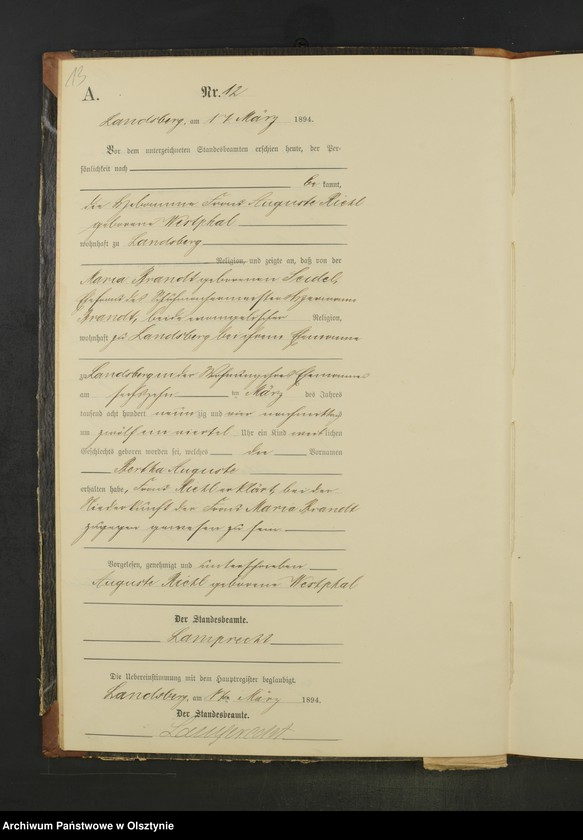 13
A. Nr. 12
Landsberg, am 17 März 1894.
Vor dem unterzeichneten Standesbeamten erschien heute, der Per-
sönlichkeit nach
be kannt,
die Hebamme Frau Auguste Riesl
geborene Westphal
wohnhaft zu Landsberg
Religion, und zeigte an, daß von der
Maria Brandt geborenen Seidel,
Ehefrau des Schuhmachermeisters Hermann
Brandt, beide evangelischer Religion,
wohnhaft zu Landsberg bei ihrem Ehemanne
zu Landsberg in der Wohnung ihres Ehemannes
am sechszehn ten März des Jahres
tausend acht hundert neun zig und vier nachmittags
um zwölf ein viertel Uhr ein Kind weib lichen
Geschlechts geboren worden sei, welches die Vornamen
Bertha Auguste
erhalten habe, Frau Riesl erklärt, bei der
Niederkunft der Frau Maria Brandt
zugegen gewesen zu sein
Vorgelesen, genehmigt und unterschrieben
Auguste Riesl geborene Westphal
Der Standesbeamte.
Lamprecht
Die Uebereinstimmung mit dem Hauptregister beglaubigt.
Landsberg, am März 1894.
Der Standesbeamte.
Lamprecht
Archiwum Państwowe w Olsztynie